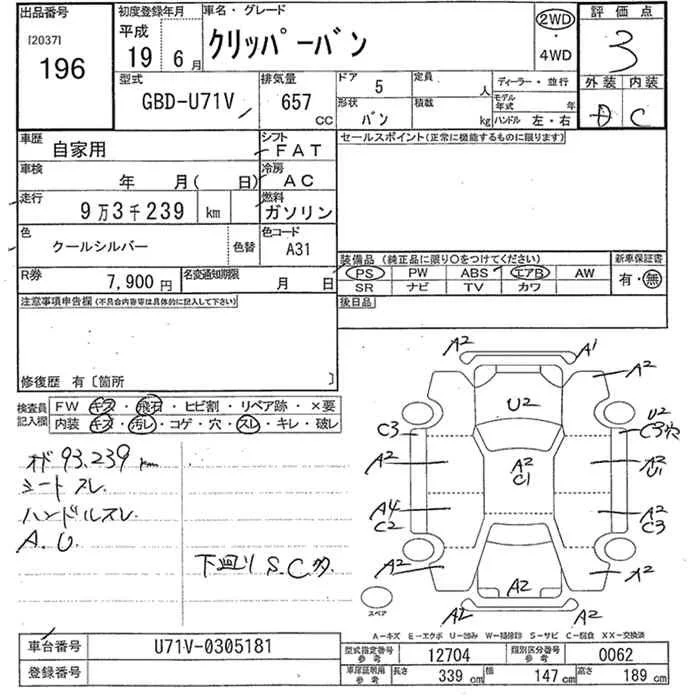 出品番号
[2037]
196
初度登録年月
平成
19 6月
車名・グレード
クリッパーバン
2WD
・
4WD
評価点
3
外装 内装
D C
型式
GBD-U71V
排気量
657
CC
ドア 5
定員 人
ディーラー・並行
形状 バン
積載 kg
モデル年式 年
ハンドル 左・右
車歴
自家用
シフト
FAT
セールスポイント(正常に機能するものに限ります)
車検
年 月( 日)
冷房
AC
走行
9万3千239 km
燃料
ガソリン
色
クールシルバー
色替
色コード
A31
装備品(純正品に限り○をつけてください)
PS PW ABS エアB AW
SR ナビ TV カワ
新車保証書
有・無
R券
7,900円
名変通知期限
月 日
後日品
注意事項申告欄(不具合内容等は具体的に記入して下さい)
修復歴 有〔箇所 〕
検査員記入欄
FW キズ・飛石・ヒビ割・リペア跡・×要
内装 キズ・汚レ・コゲ・穴・スレ・キレ・破レ
オド 93,239km
シートスレ
ハンドルスレ
A.U.
下廻り S.C多
A2 A1
A2 A2
U2
U2
C3 C3穴
A2 A2 A2
C1 U1
A4 A2
C2 C3
A2 A2 A2
A2 A2
スペア
A-キズ E-エクボ U-凹み W-補修跡 S-サビ C-腐食 XX-交換済
車台番号
U71V-0305181
登録番号
型式指定番号
参考
12704
類別区分番号
参考
0062
車庫証明用
参考
長さ 339cm 幅 147cm 高さ 189cm